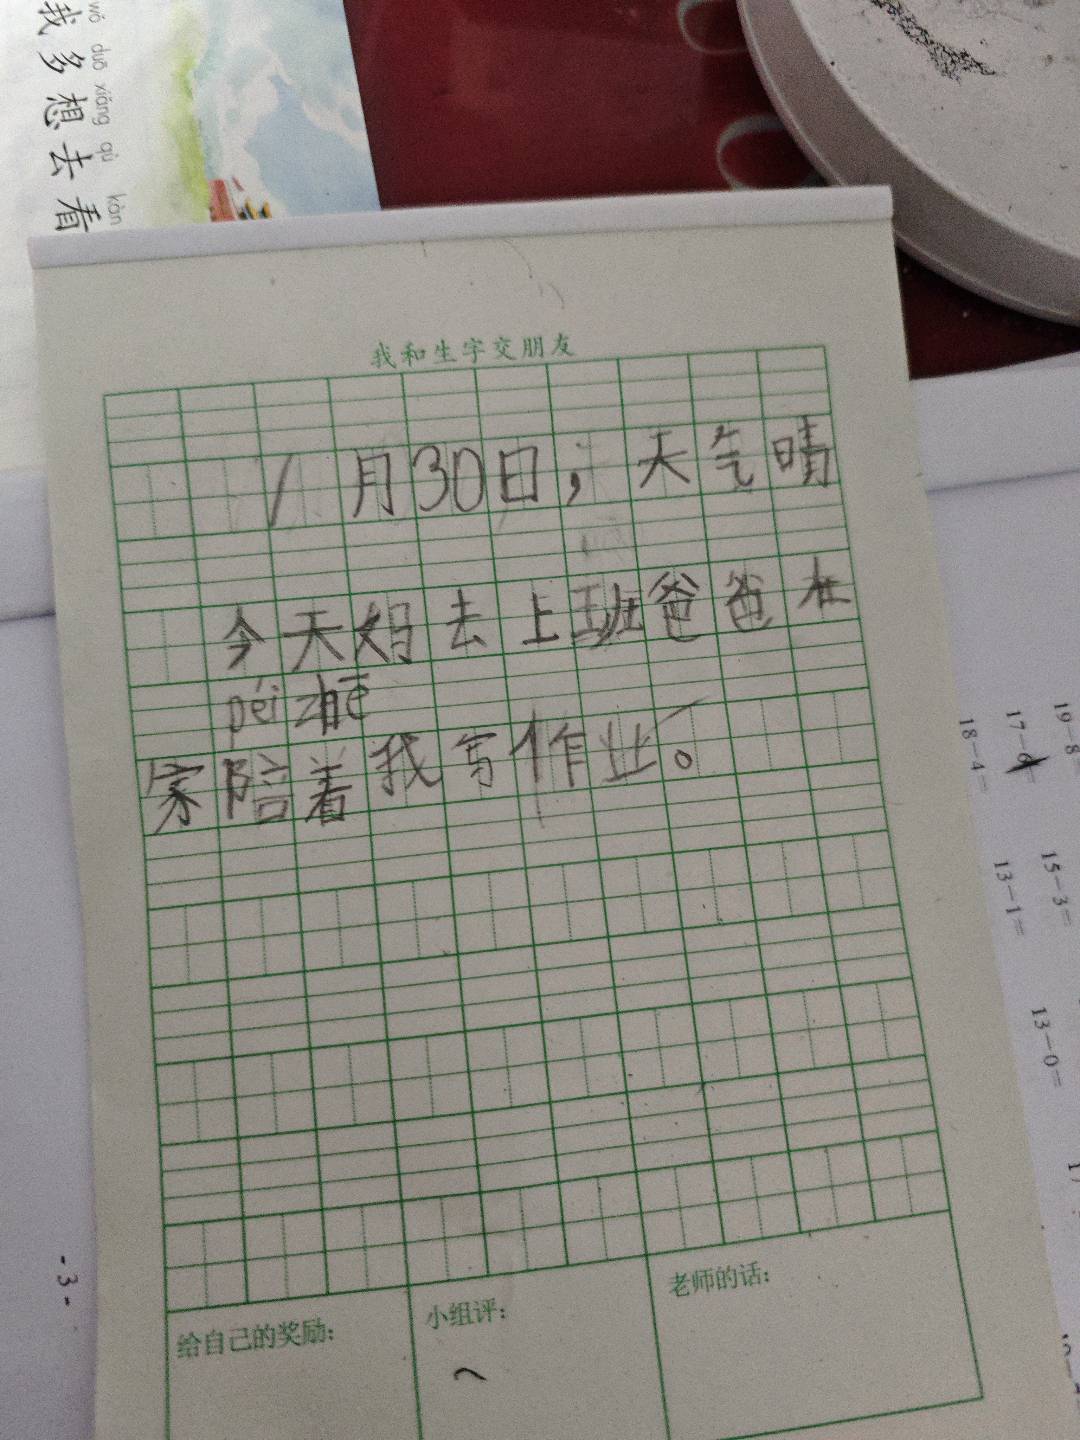 wǒ duō xiǎng qù kàn
我多想去看
我和生字交朋友
1月30日，天气晴
今天妈去上班爸爸在
péi zhe
家陪着我写作业。
给自己的奖励：
小组评：
老师的话：
-3-
19-8=
17-6=
18-4=
15-3=
13-1=
13-0=